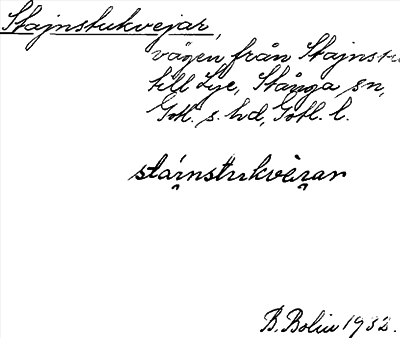 Stajnstukvejar,
vägen från Stajnstu
till Lye, Stånga sn,
Gotl. s. hd, Gotl. l.
stái̯nstukvèi̯ar
B. Bolin 1932.